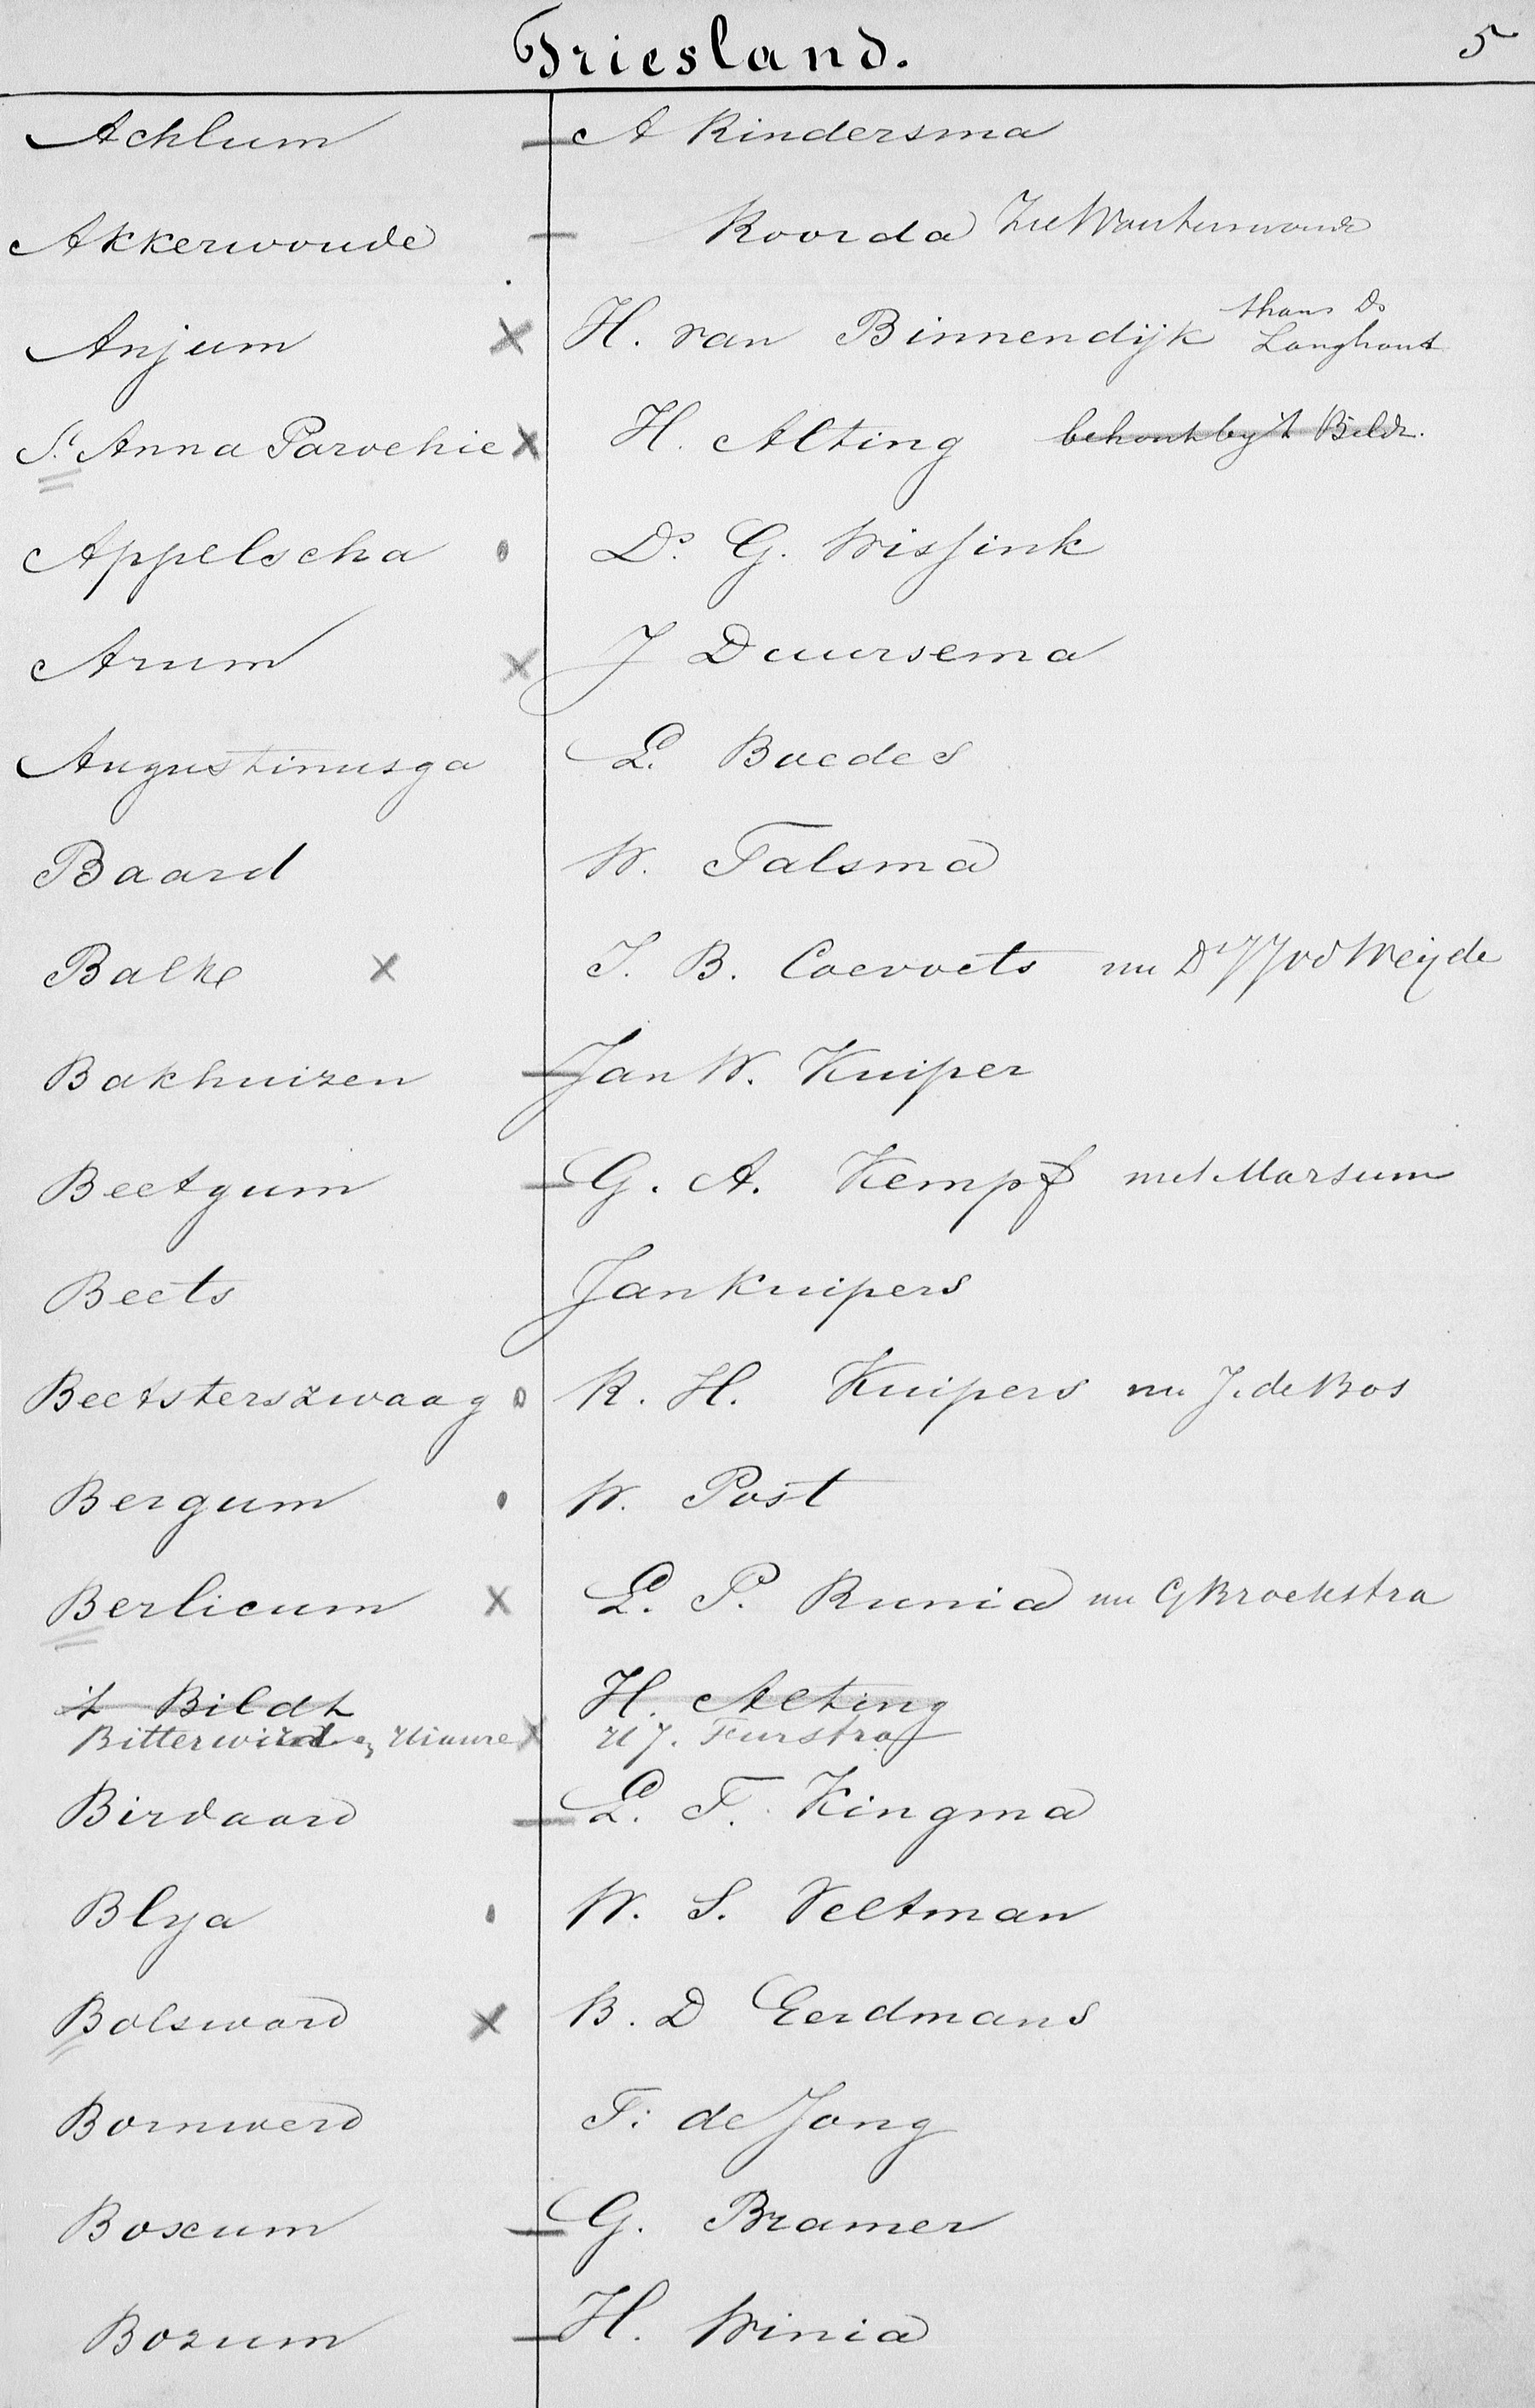 Friesland. 5
Achlum — A Rindersma
Akkerwoude — Roorda Zie Wouterswoude
Anjum × H. van Binnendijk thans Ds Langhout
St. Anna Parochie × H. Alting behoort by 't Bildt.
Appelscha Ds. G. Wissink
Arum × J Duursema
Augustinusga L. Boedes
Baard W. Talsma
Balk × J. B. Coevoets nu Ds JJ vd Meijde
Bakhuizen — Jan W. Kuiper
Beetgum — G. A. Kempff met Marsum
Beets Jan Kuipers
Beetsterszwaag R. H. Kuipers nu J. de Bos
Bergum W. Post
Berlicum × L. P. Runia nu G Broekstra
't Bildt H. Alting
× Furstra
Birdaard — L. T. Kingma
Blya W. S. Veltman
Bolsward × B. D Eerdmans
Bornwerd T. de Jong
Boxum — G. Bramer
Bozum — H. Winia